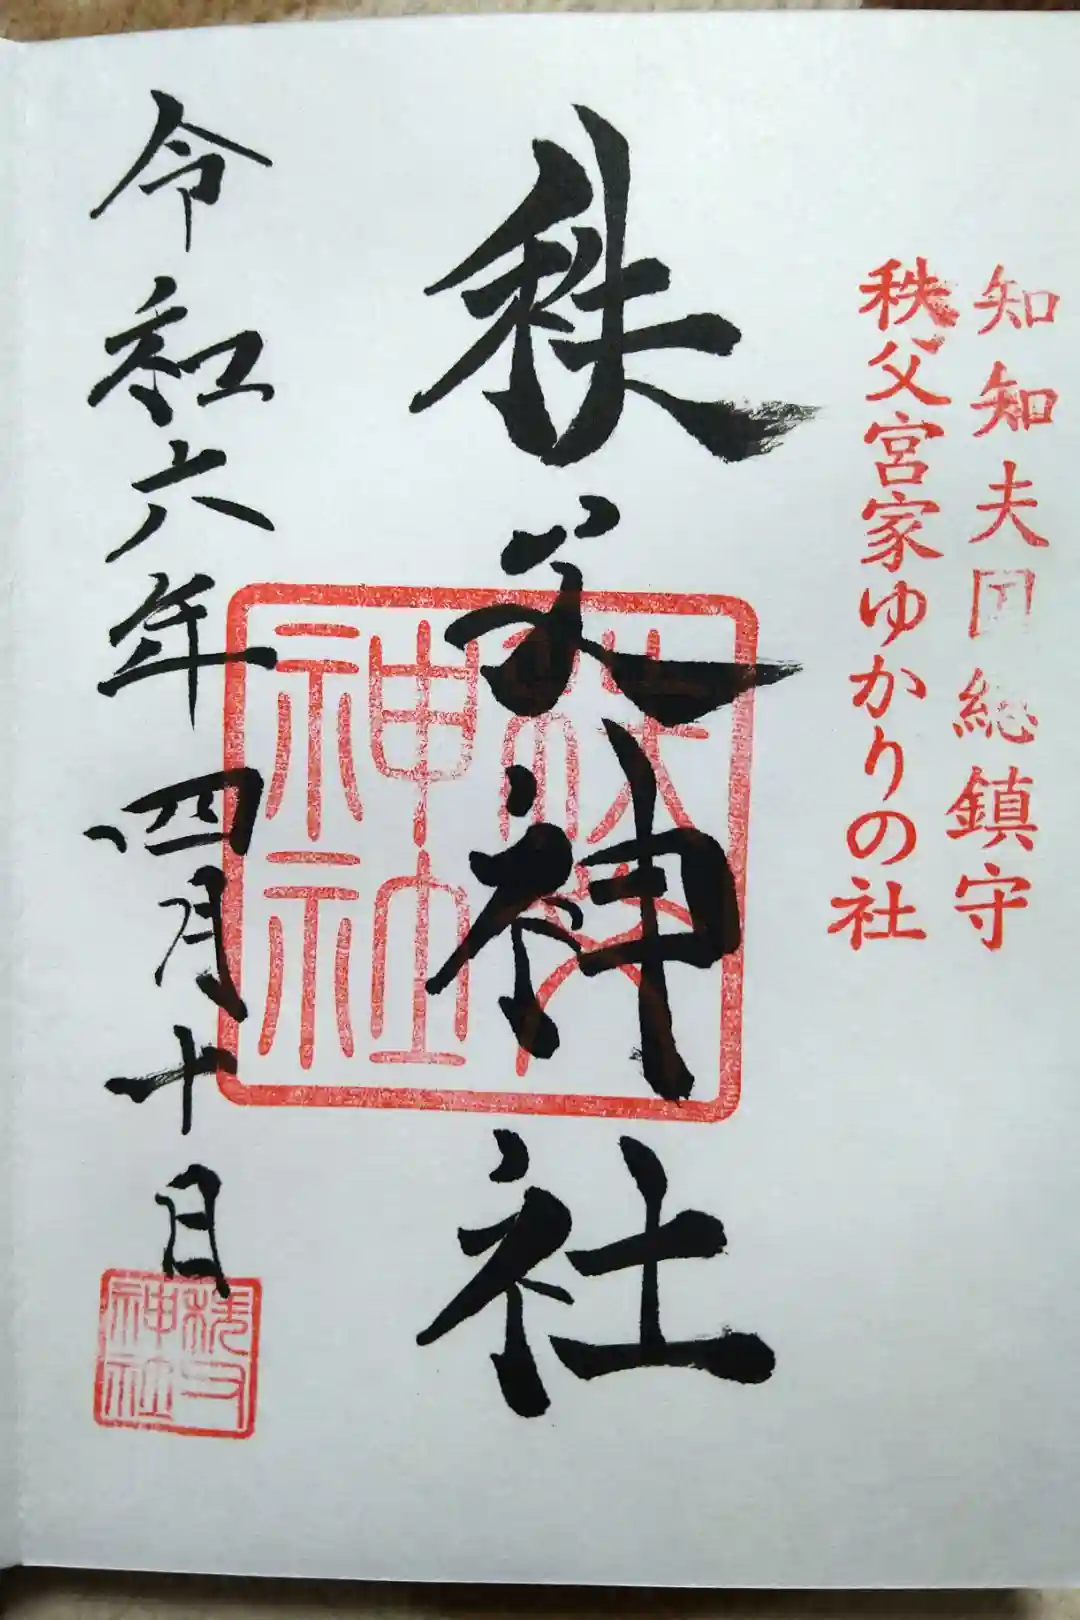 知知夫国総鎮守
秩父宮家ゆかりの社
秩父神社
秩父神社
令和六年四月十日
神社